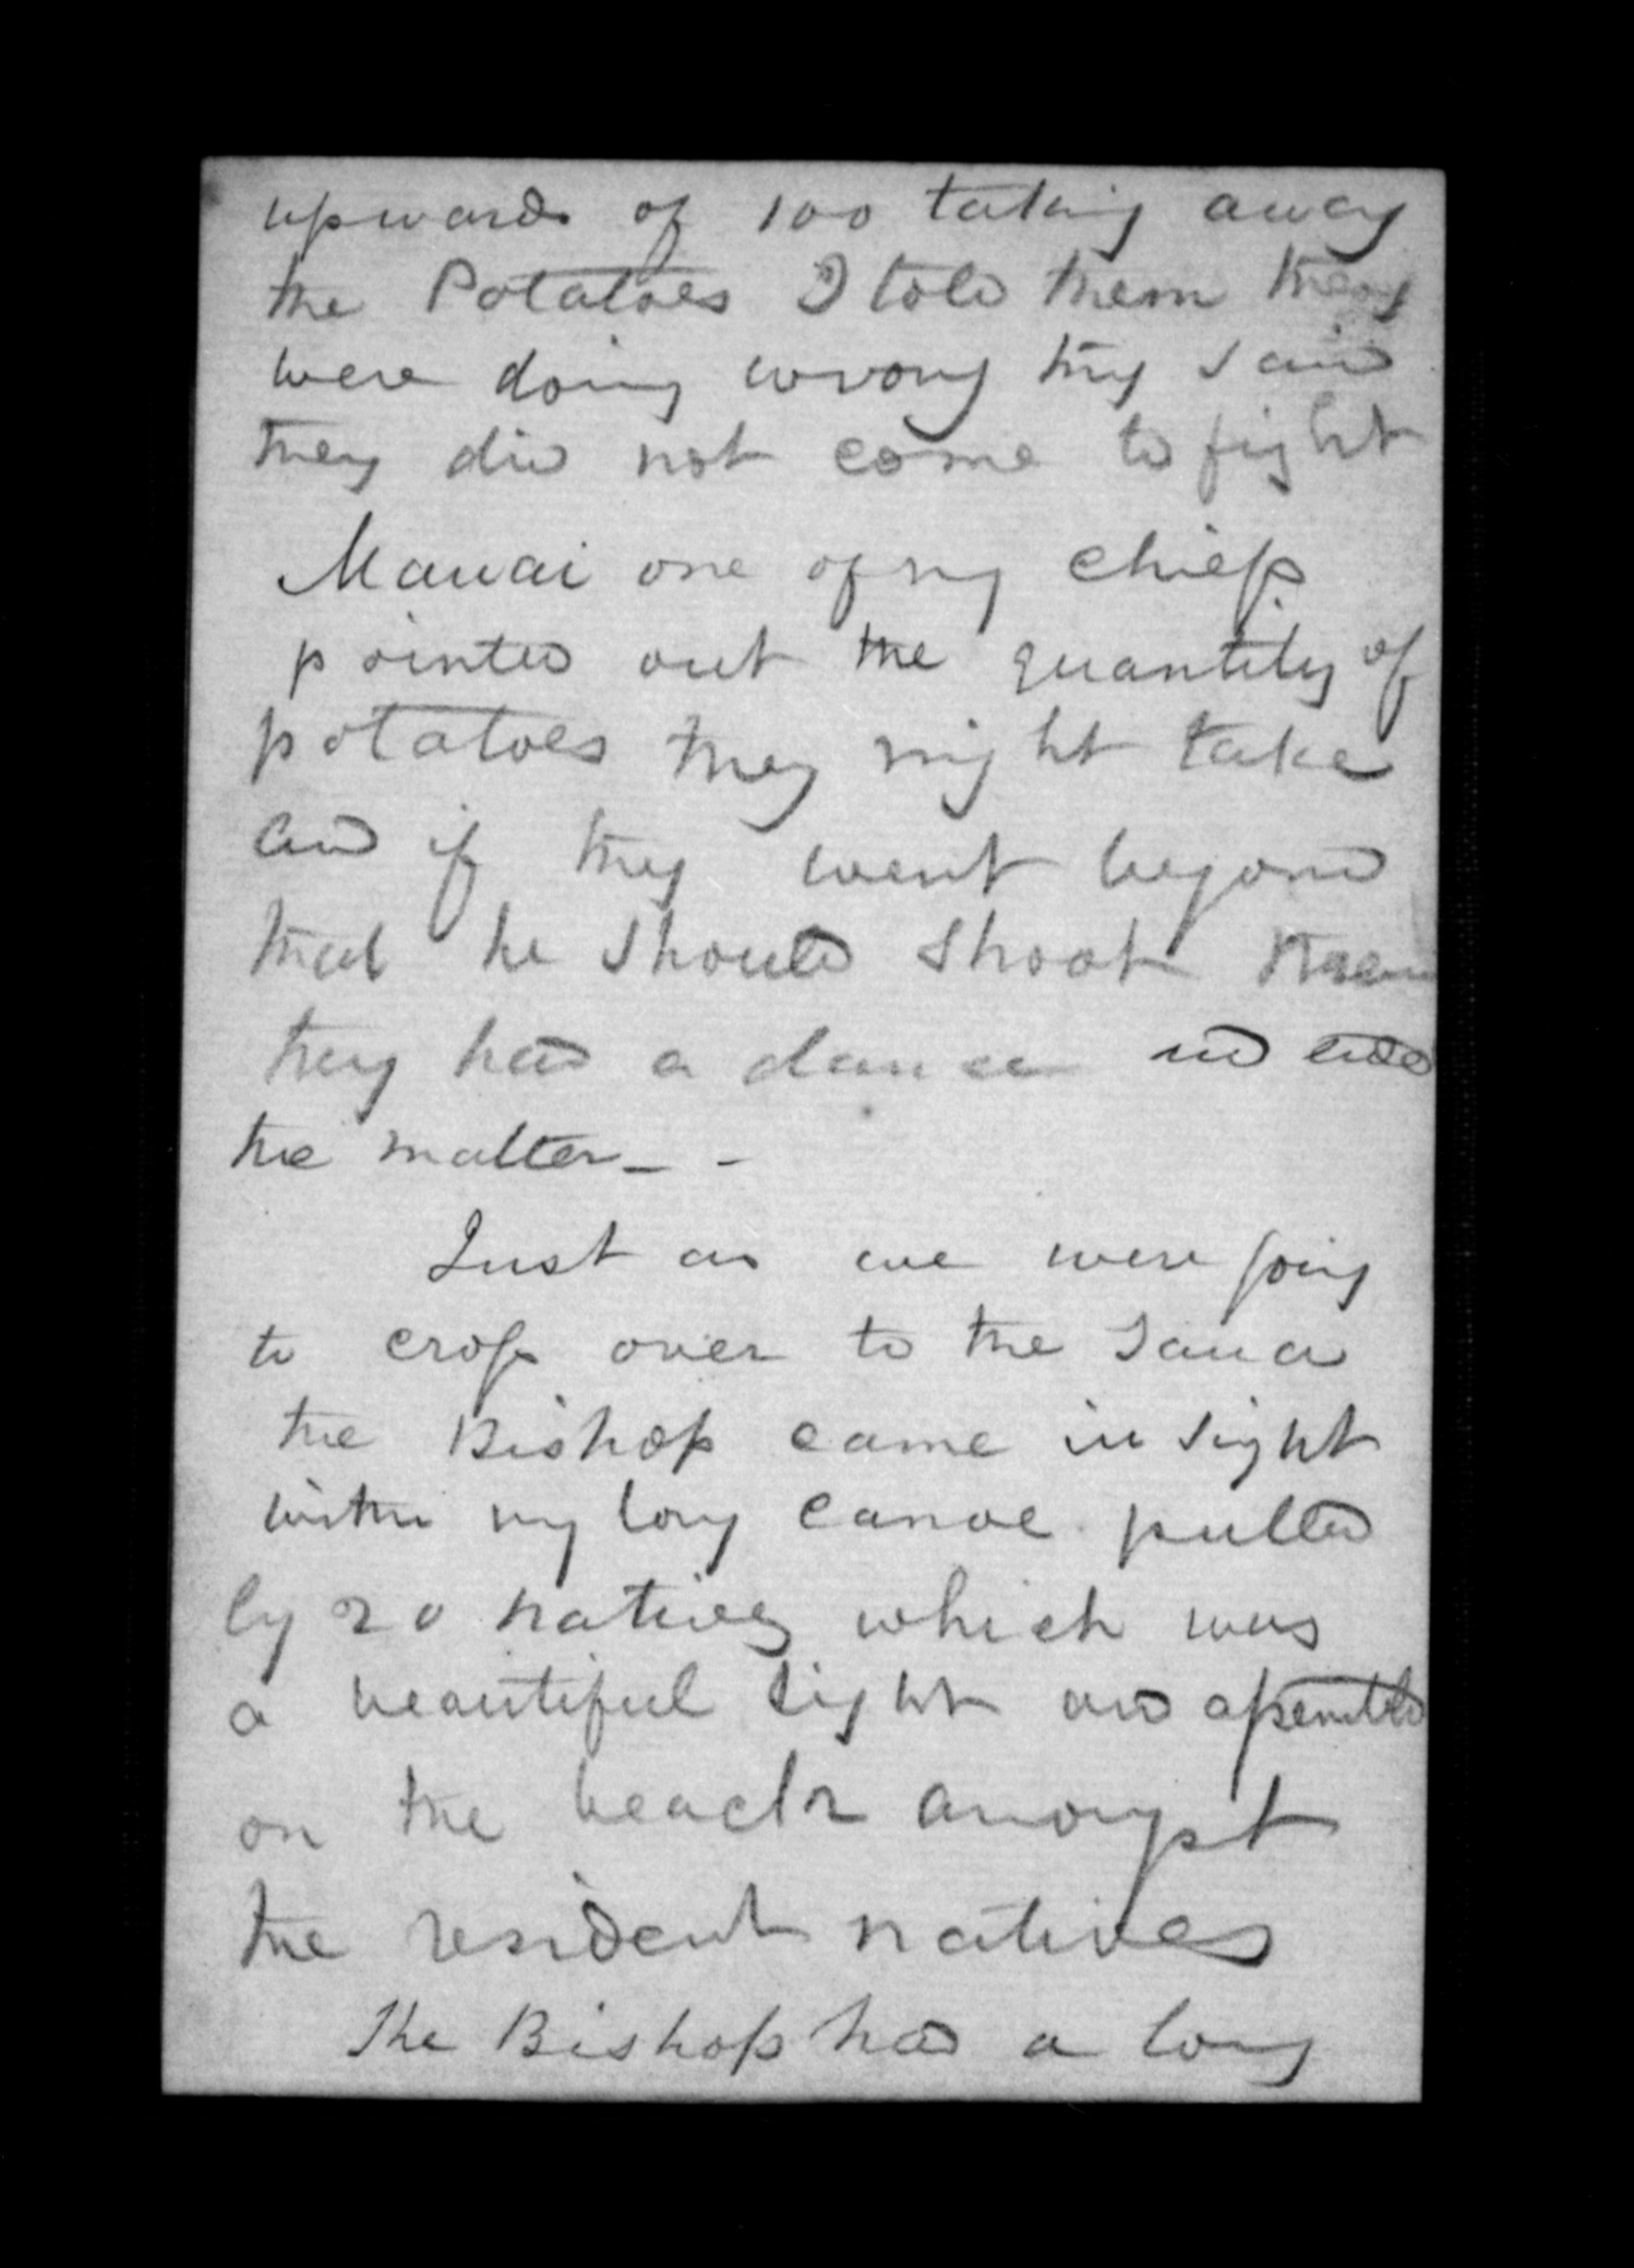 upwards of 100 taking away
the Potatoes I told them they
were doing wrong they said
they did not come to fight
Mauai one of my chiefs
pointed out the quantity of
potatoes they might take
and if they went beyond
that he should shoot them
they had a dance and ended
the matter _ -
Just as we were going
to cross over to the Taua
the Bishop came in sight
with my long canoe pulled
by 20 natives which was
a beautiful sight and assembled
on the beach amongst
the resident natives
The Bishop had a long